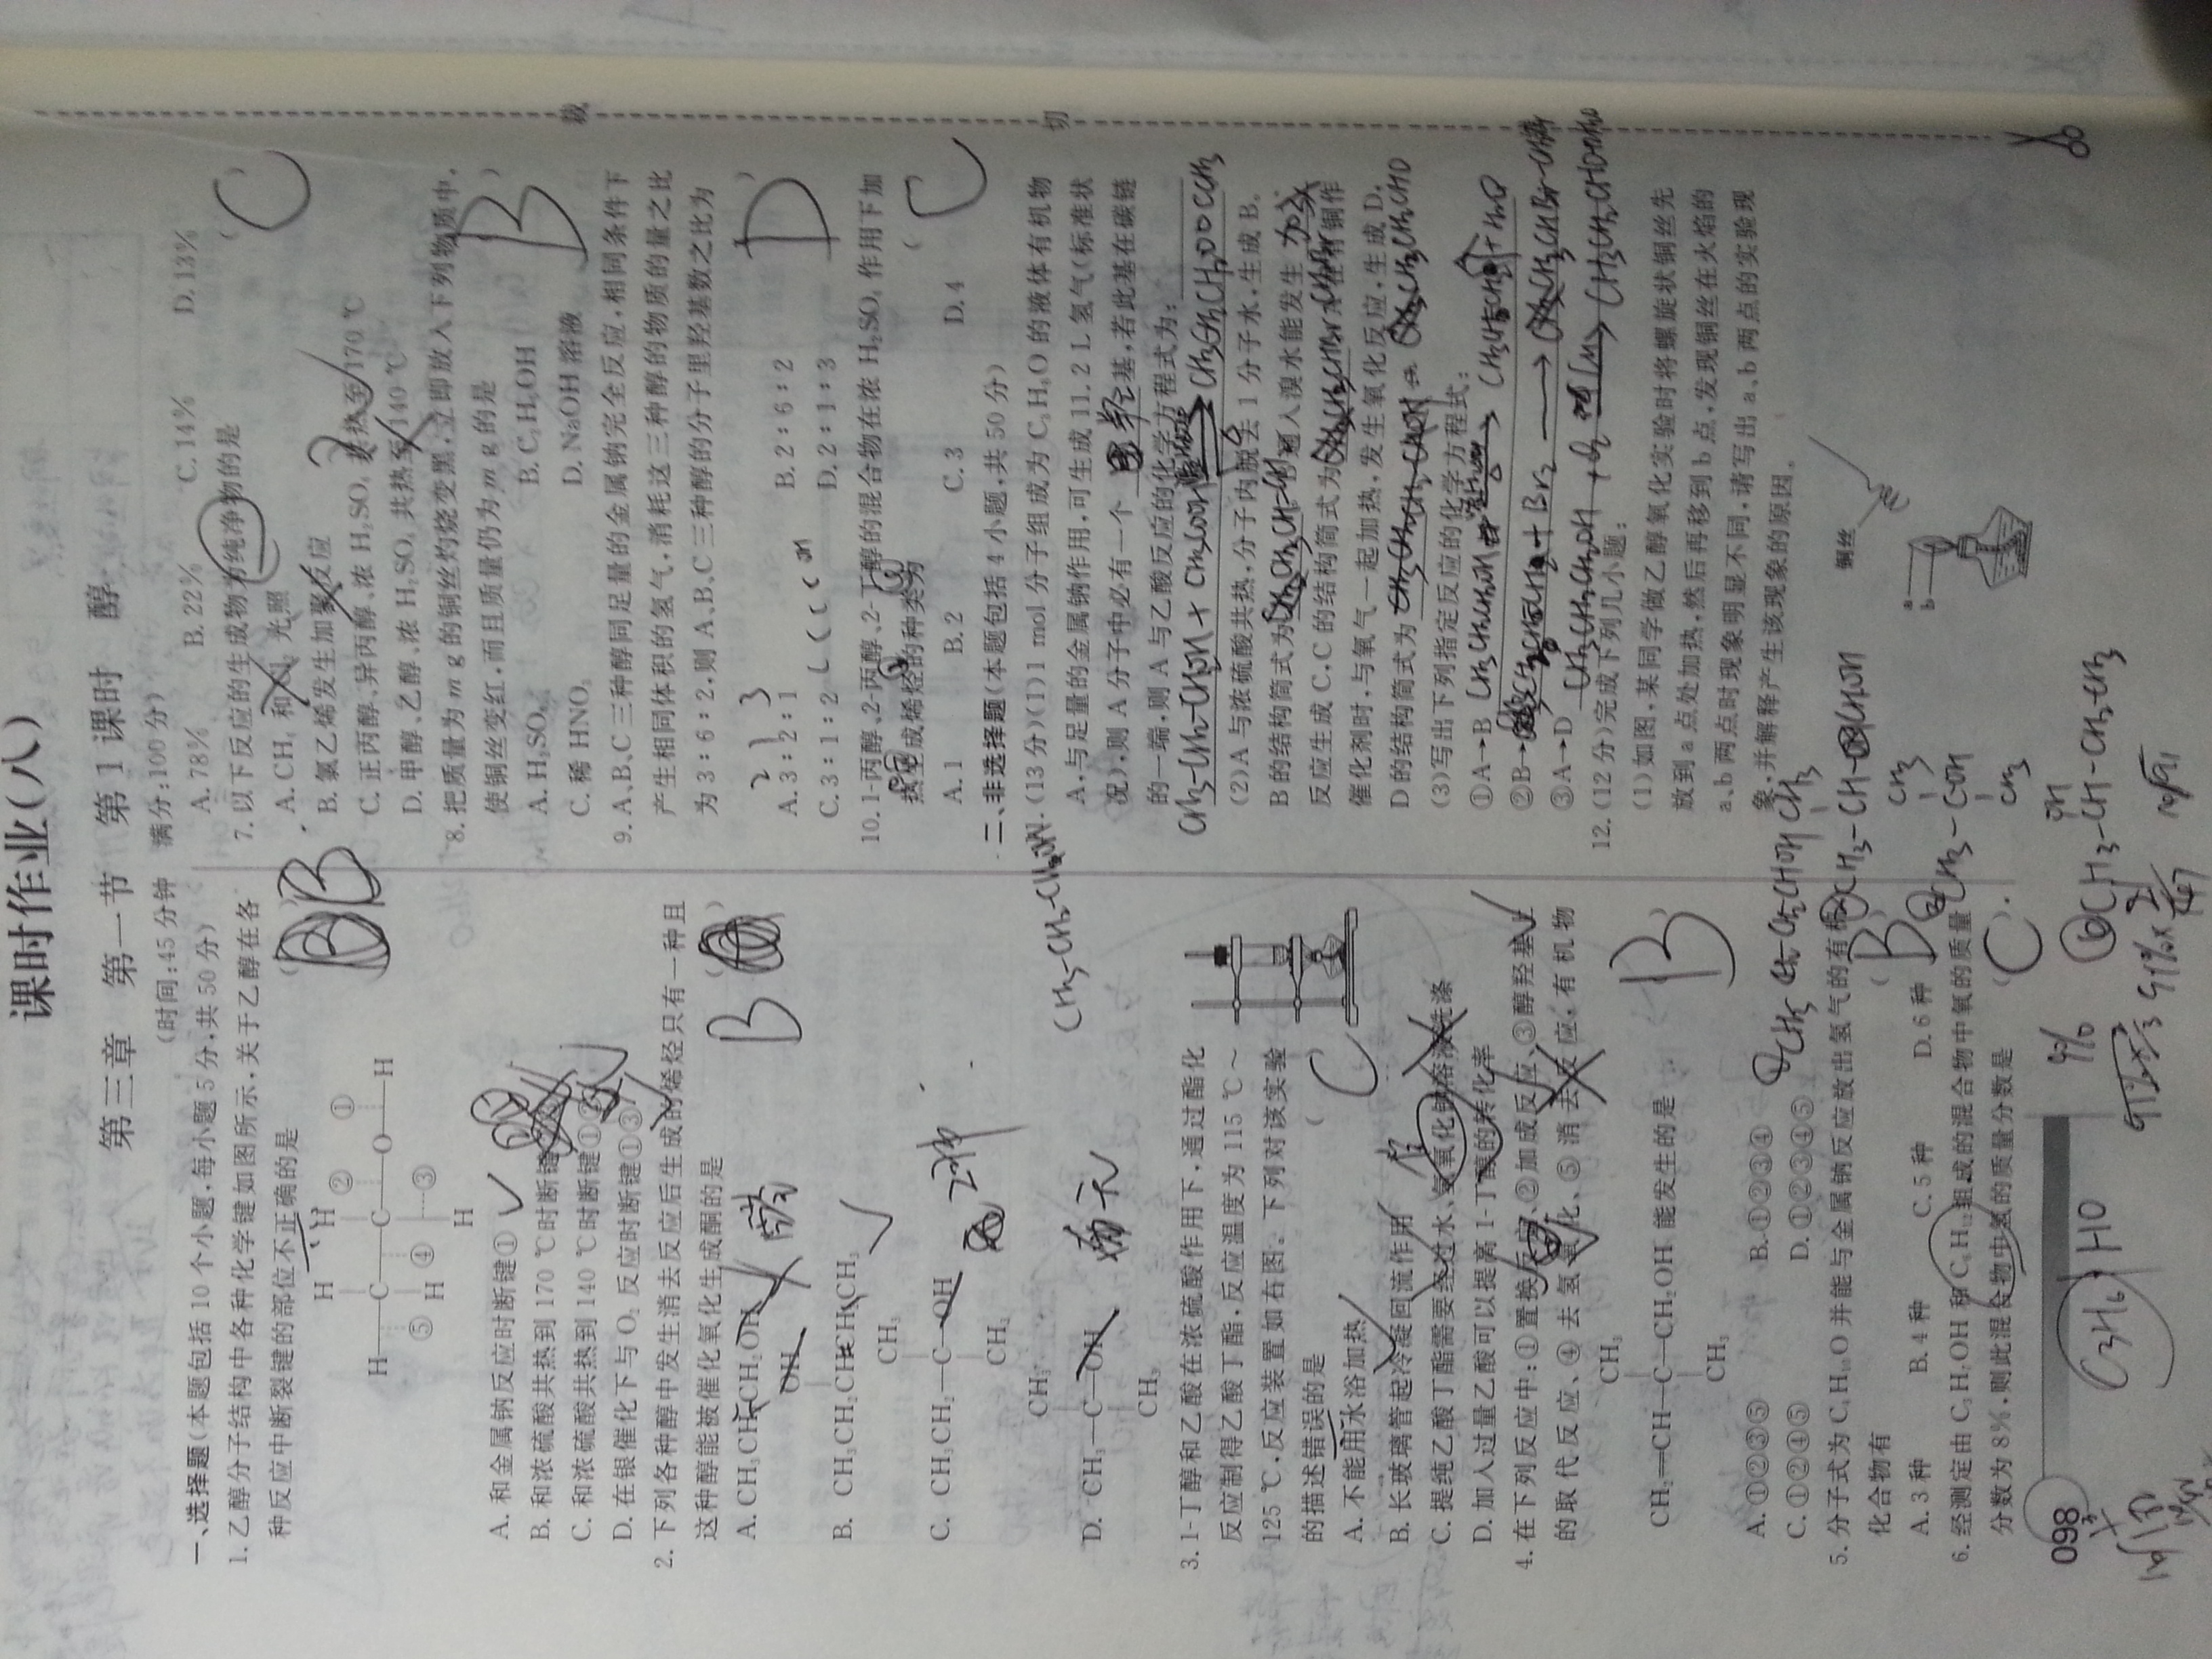 课时作业(八)
第三章 第一节 第1课时 醇
(时间:45分钟 满分:100分)
一、选择题(本题包括10个小题,每小题5分,共50分)
1.乙醇分子结构中各种化学键如图所示,关于乙醇在各
种反应中断裂键的部位不正确的是
B
H H
② ①
H—C—C—O—H
⑤ H ④ ③
H
A.和金属钠反应时断键①
B.和浓硫酸共热到170 ℃时断键
C.和浓硫酸共热到140 ℃时断键①②
D.在银催化下与O₂反应时断键①③
2.下列各种醇中发生消去反应后生成的烯烃只有一种且
这种醇能被催化氧化生成酮的是
B
A. CH₃CH₂CH₂OH
OH
B. CH₃CH₂CHCH₂CH₃
CH₃
C. CH₃CH₂—C—OH
2种
CH₃
CH₃
D. CH₃—C—OH
无
CH₃
3.1-丁醇和乙酸在浓硫酸作用下,通过酯化
反应制得乙酸丁酯,反应温度为115 ℃~
125 ℃,反应装置如右图。下列对该实验
的描述错误的是
C
A.不能用水浴加热
B.长玻璃管起冷凝回流作用
C.提纯乙酸丁酯需要经过水、氢氧化钠溶液洗涤
D.加入过量乙酸可以提高1-丁醇的转化率
4.在下列反应中:①置换反应、②加成反应、③醇羟基上
的取代反应、④去氢氧化、⑤消去反应,有机物
CH₃
CH₂=CH—C—CH₂OH 能发生的是
CH₃
B
A.①②③⑤ B.①②③④
C.①②④⑤ D.①②③④⑤
5.分子式为C₄H₁₀O并能与金属钠反应放出氢气的有机
化合物有
B
A.3种 B.4种 C.5种 D.6种
6.经测定由C₃H₇OH和C₆H₁₂组成的混合物中氧的质量
分数为8%,则此混合物中氢的质量分数是
C
098
C₃H₆ HO
A.78% B.22% C.14% D.13%
7.以下反应的生成物为纯净物的是
C
A.CH₄和Cl₂光照
B.氯乙烯发生加聚反应
C.正丙醇、异丙醇、浓H₂SO₄共热至170 ℃
D.甲醇、乙醇、浓H₂SO₄共热至140 ℃
8.把质量为m g的铜丝灼烧变黑,立即放入下列物质中,
使铜丝变红,而且质量仍为m g的是
B
A.H₂SO₄ B.C₂H₅OH
C.稀HNO₃ D.NaOH溶液
9.A、B、C三种醇同足量的金属钠完全反应,相同条件下
产生相同体积的氢气,消耗这三种醇的物质的量之比
为3∶6∶2,则A、B、C三种醇的分子里羟基数之比为
2 1 3
D
A.3∶2∶1 B.2∶6∶2
C.3∶1∶2 D.2∶1∶3
C C C C OH
10.1-丙醇、2-丙醇、2-丁醇的混合物在浓H₂SO₄作用下加
热生成烯烃的种类为
C
A.1 B.2 C.3 D.4
二、非选择题(本题包括4小题,共50分)
CH₃-CH₂-CH₂OH
(13分)(1)1 mol分子组成为C₃H₈O的液体有机物
A,与足量的金属钠作用,可生成11.2 L氢气(标准状
况),则A分子中必有一个 羟 基,若此基在碳链
的一端,则A与乙酸反应的化学方程式为:
CH₃-CH₂-CH₂OH + CH₃COOH CH₃CH₂CH₂OOCCH₃
(2)A与浓硫酸共热,分子内脱去1分子水,生成B。
B的结构简式为 CH₃CH=CH₂ B通入溴水能发生 加成
反应生成C,C的结构简式为 CH₃CHBr-CH₂Br A在有铜作
催化剂时,与氧气一起加热,发生氧化反应,生成D,
D的结构简式为 CH₃CH₂CHO
(3)写出下列指定反应的化学方程式:
①A→B CH₃CH₂CH₂OH
②B→ + Br₂ → CH₃CHBr-
③A→D CH₃CH₂CH₂OH + O₂ Cu → CH₃CH₂CHO+H₂O
12.(12分)完成下列几小题:
(1)如图,某同学做乙醇氧化实验时将螺旋状铜丝先
放到a点处加热,然后再移到b点,发现铜丝在火焰的
a、b两点时现象明显不同,请写出a、b两点的实验现
象,并解释产生该现象的原因。
①CH₃ CH₂ CH₂CHOH
CH₃
②CH₃-CH-CH₂OH
CH₃
③CH₃-COH
CH₃
OH
④CH₃-CH-CH₂-CH₃
铜丝
a
b
裁
切